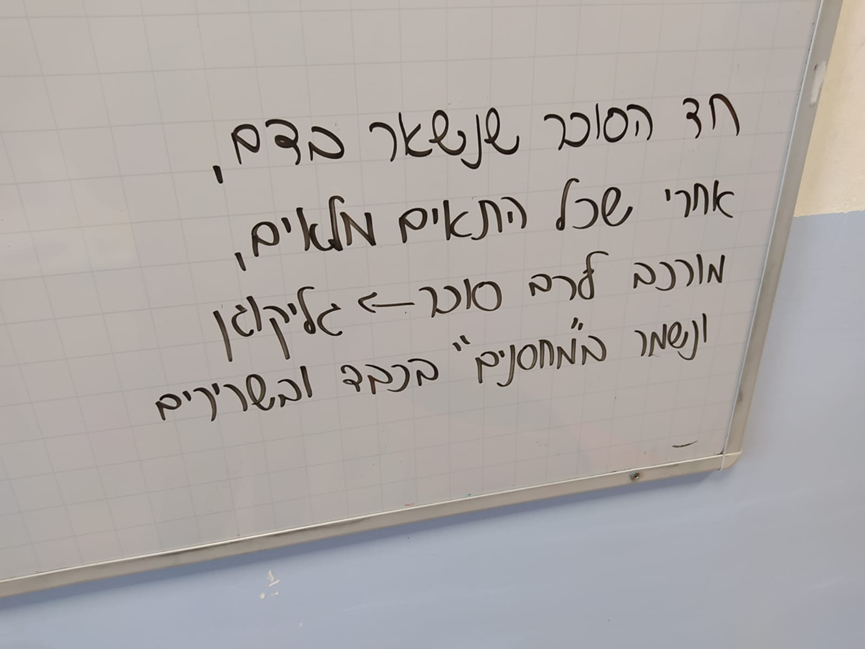 חד הסוכר שנשאר בדם,
אחרי שכל התאים מלאים,
מורכב לרב סוכר ← גליקוגן
ונשמר ב"מחסנים" בכבד ובשרירים